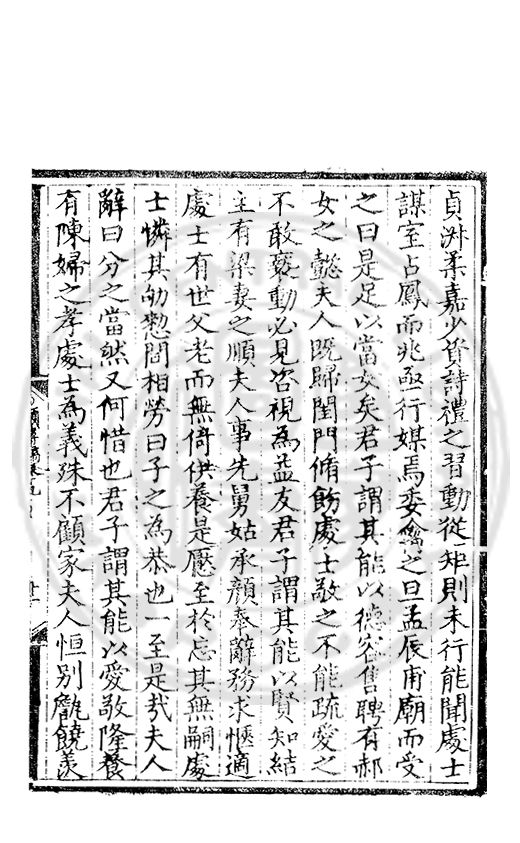 貞淑柔嘉少資詩禮之習動從矩則未行能聞處士
謀室占鳳而兆亟行媒焉委禽之旦孟辰甫廟而受
之曰是足以當女矣君子謂其能以德容售聘有郝
女之懿夫人既歸閨門脩飭處士敬之不能疏愛之
不敢䙝動必見咨視為益友君子謂其能以賢知結
主有梁妻之順夫人事先舅姑承顏奉辭務求愜適
處士有世父老而無倚供養是饜至於忘其無嗣處
士憐其劬愁間相勞曰子之為恭也一至是㢤夫人
辭曰分之當然又何惜也君子謂其能以愛敬隆養
有陳婦之孝處士為義殊不顧家夫人恒別麄饒羨